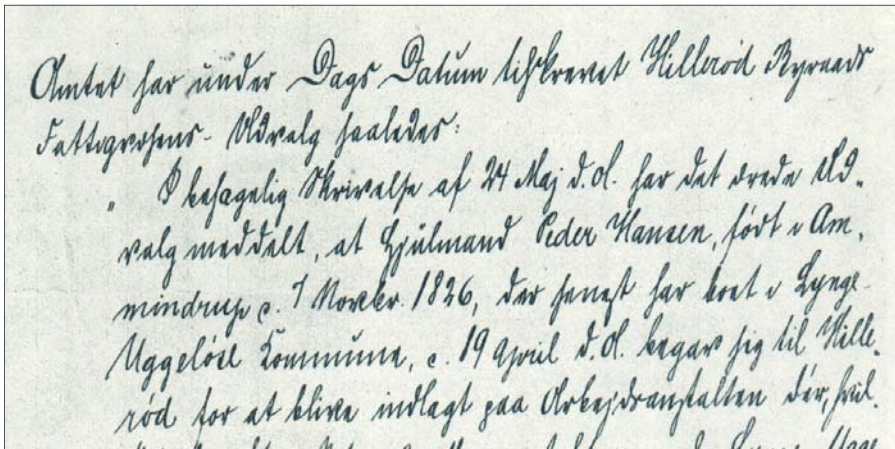 Amtet har under Dags Datum tilskrevet Hilleröd Byraads
Fattigvæsens-Udvalg saaledes:
" I behagelig Skrivelse af 24 Maj d. A. har det ærede Ud-
valg meddelt, at Hjulmand Peder Hansen, født i Am-
mindrup d. 7 Novbr. 1826, der senest har boet i Lynge-
Uggelöse Kommune, d. 19 April d. A. begav sig til Hille-
röd for at blive indlagt paa Arbejdsanstalten dér, hvil-